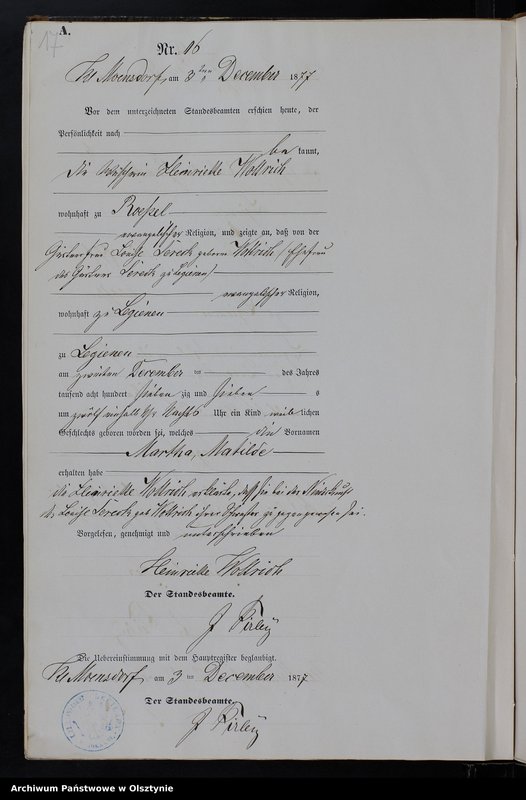 17
A.
Nr. 16
Kl Moensdorf, am 3ten December 1877
Vor dem unterzeichneten Standesbeamten erschien heute, der
Persönlichkeit nach
be kannt,
die Henriette Wollrich
wohnhaft zu Roessel
evangelischer Religion, und zeigte an, daß von der
Gärtnerfrau Louise geborne Wollrich / Ehefrau
des Gärtners zu Legienen /
evangelischer Religion,
wohnhaft zu Legienen
zu Legienen
am zweiten December des Jahres
tausend acht hundert sieben zig und sieben s
um zwölf einhalb Uhr Nachts Uhr ein Kind weib lichen
Geschlechts geboren worden sei, welches die Vornamen
Martha, Matilde
erhalten habe
die Henriette Wollrich erklärte, daß sie bei der Niederkunft
der Louise geb Wollrich ihrer Schwester zugegen gewesen sei.
Vorgelesen, genehmigt und unterschrieben
Henriette Wollrich
Der Standesbeamte.
J Firley
Die Uebereinstimmung mit dem Hauptregister beglaubigt.
Kl Moensdorf, am 3 ten December 1877
Der Standesbeamte.
J Firley
Archiwum Państwowe w Olsztynie